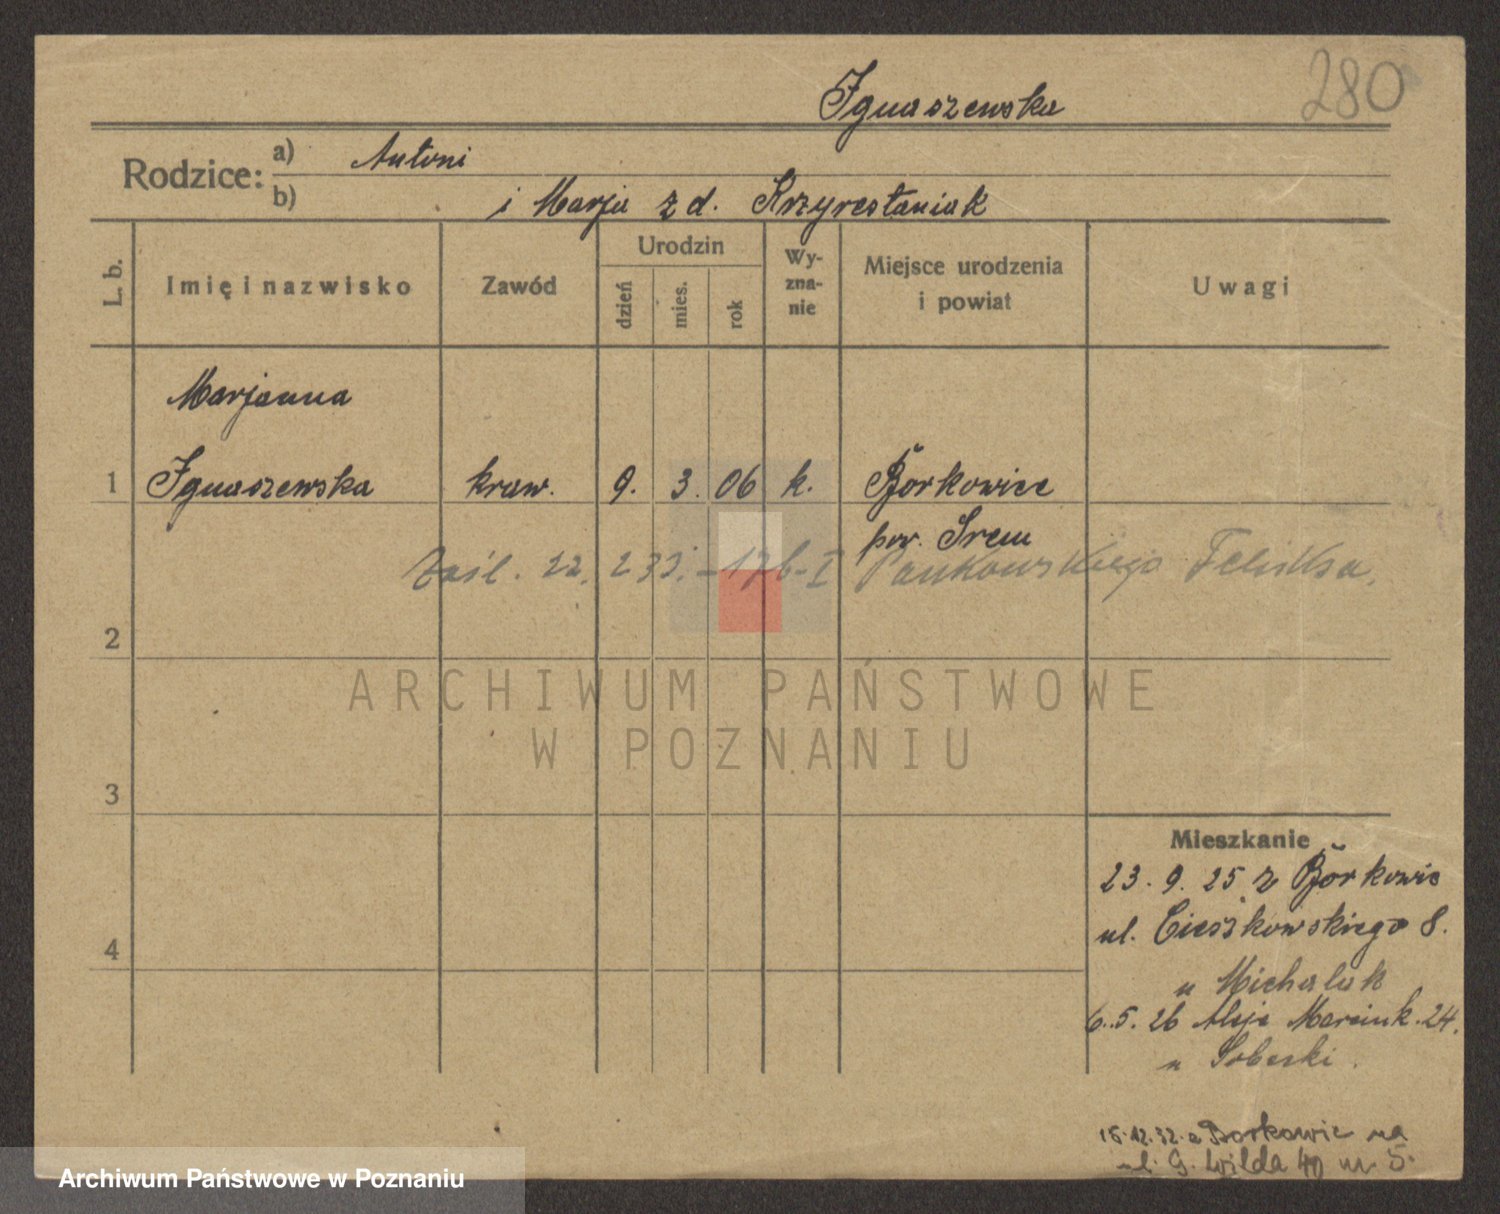 280
Ignaszewska
Rodzice:
a) Antoni
b) i Marja z d. Krzyrestaniak
L. b.
Imię i nazwisko
Zawód
Urodzin
dzień
mies.
rok
Wy-
zna-
nie
Miejsce urodzenia
i powiat
Uwagi
Marjanna
1 Ignaszewska kraw. 9. 3. 06 k. Borkowice
pow. Srem
Zaśl. 22. 2 33. – 176-I Pankowskiego Feliksa.
2
ARCHIWUM PAŃSTWOWE
W POZNANIU
3
4
Mieszkanie
23. 9. 25 z Borkowic
ul. Cieszkowskiego 8.
u Michalak
6. 5. 26 Aleje Marcink. 24.
u Soberski.
15.12.32. z Borkowic na
ul. G. Wilda 40 m. 5.
Archiwum Państwowe w Poznaniu